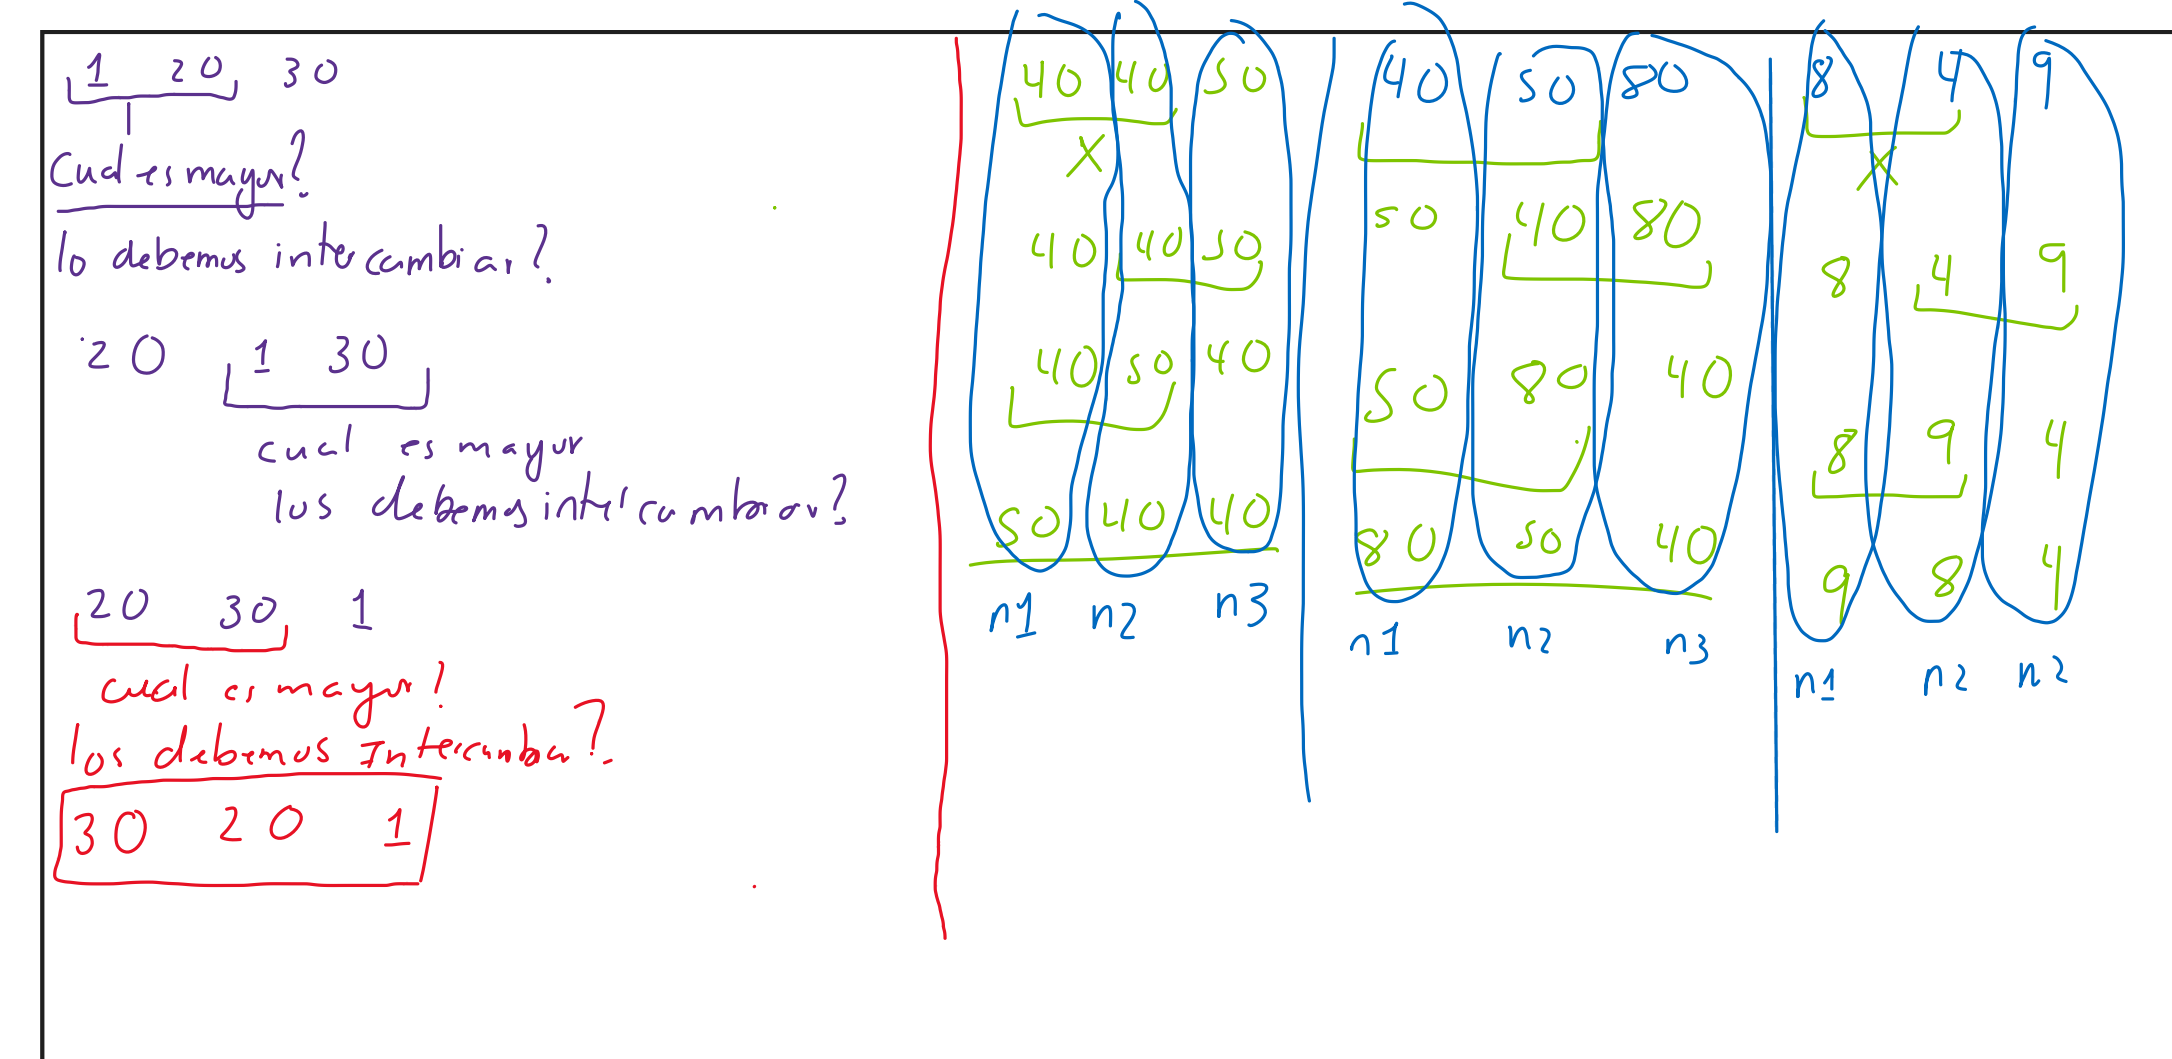 1 20 30
Cual es mayor?
lo debemos intercambiar?
20 1 30
cual es mayor
los debemos intercambiar?
20 30 1
cual es mayor?
los debemos Intercambiar?
30 20 1
40 40 50
X
40 40 50
40 50 40
50 40 40
n1 n2 n3
40 50 80
50 40 80
50 80 40
80 50 40
n1 n2 n3
8 4 9
X
8 4 9
8 9 4
9 8 4
n1 n2 n2